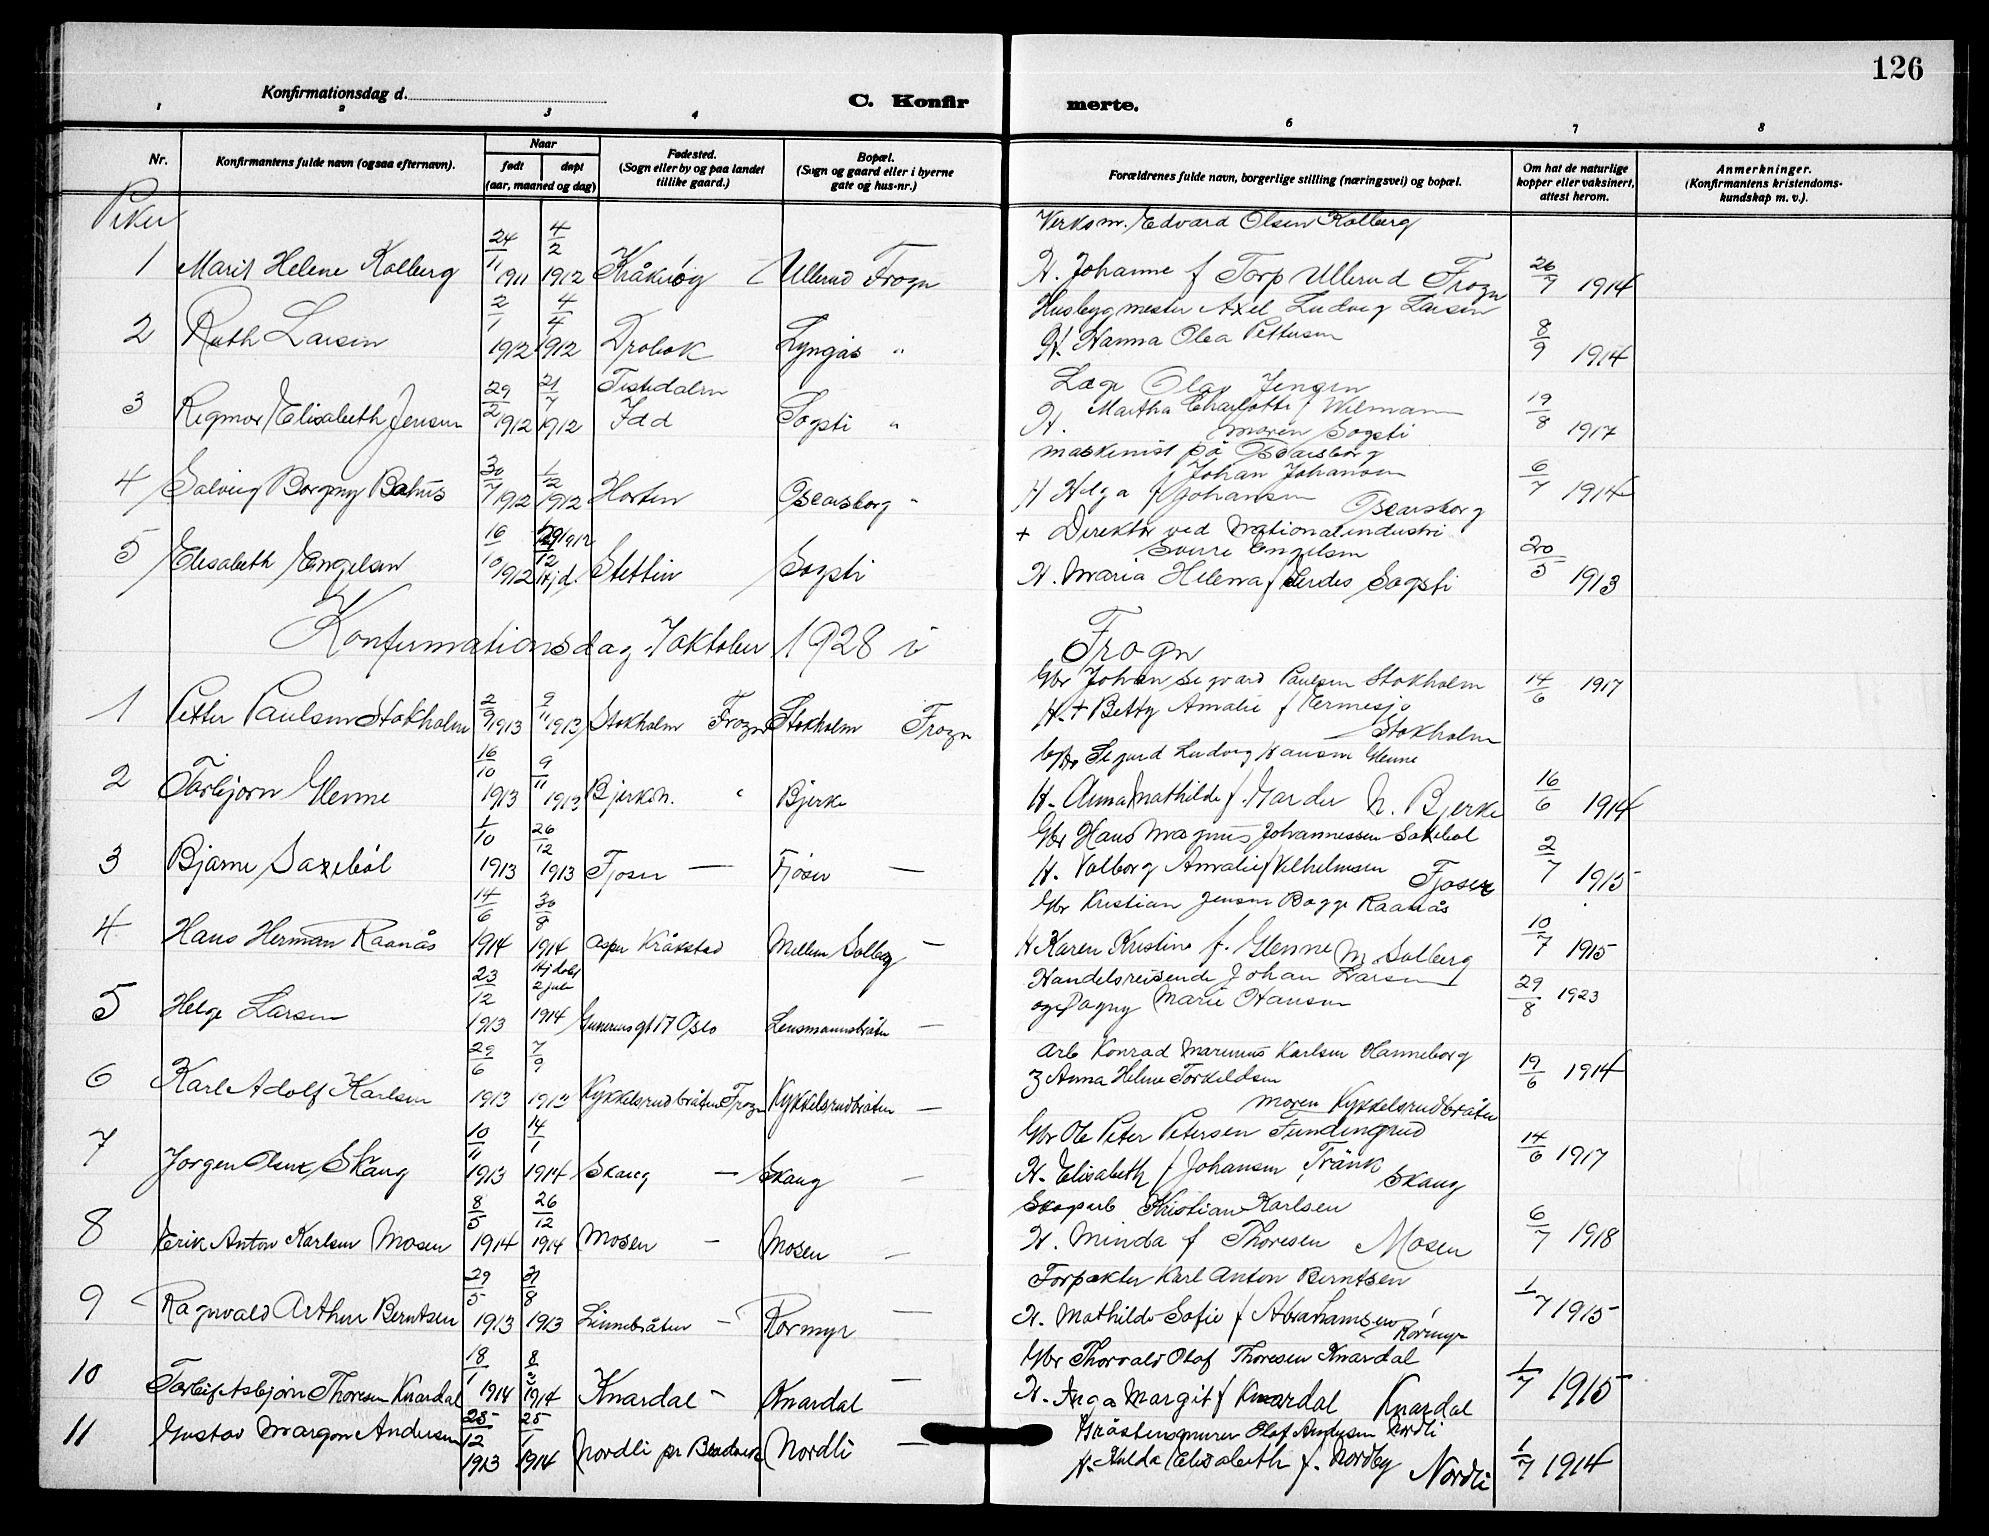 126
Konfirmationsdag d.
C. Konfirmerte.
1 2 3 4 6 7 8
Nr.
Konfirmantens fulde navn (ogsaa efternavn).
Naar
født døpt
(aar, maaned og dag)
Fødested.
(Sogn eller by og paa landet
tillike gaard.)
Bopæl.
(Sogn og gaard eller i byerne
gate og hus-nr.)
Forældrenes fulde navn, borgerlige stilling (næringsvei) og bopæl.
Om hat de naturlige
kopper eller vaksinert,
attest herom.
Anmerkninger.
(Konfirmantens kristendoms-
kundskap m. v.).
Piker
Verksm. Edvard Olsen Kolberg
1 Marit Helene Kolberg 24/11 1911 4/2 1912 Kråkerøy Ullerud Frogn H. Johanne f Torp Ullerud Frogn 26/9 1914
Husbygmester Axel Ludvig Larsen
2 Ruth Larsen 2/1 1912 4/4 1912 Drøbak Lyngås " H. Hanna Olea Pettersen 8/9 1914
Tistedalen
Læge Olav Jensen
3 Rigmor Elisabeth Jensen 29/2 1912 21/7 1912 Idd Sogsti " H. Martha Charlotte f Wilmann 19/8 1917
moren Sogsti
maskinist på Oscarsborg
Johan Johansen
4 Solveig Borgny Bohus 30/7 1912 1/12 1912 Horten Oscarsborg " H Helga f Johansen Oscarsborg 6/7 1914
+ Direktør ved Nationalindustri
Sverre Engelsen
5 Elisabeth Engelsen 16/10 1912 1912 Hjd. Stettin Sogsti H. Maria Helena f Gerdes Sogsti 20/5 1913
Konfirmationsdag 7 oktober 1928 i Frogn
Gbr Johan Sigvard Paulsen Stokholm
1 Petter Paulsen Stokholm 2/9 1913 9/11 1913 Stokholm Frogn Stokholm Frogn H. + Betty Amalie f Ermesjø 14/6 1917
Stokholm
Gbr Sigurd Ludvig Hansen Glenne
2 Torbjørn Glenne 16/10 1913 9/11 1913 Bjerke n. " Bjerke H. Anna Mathilde f. Garder N. Bjerke 16/6 1914
Gbr Hans Magnus Johannessen Saxebøl
3 Bjarne Saxebøl 1/10 1913 26/12 1913 Fjøser — Fjøser — H. Valborg Amalie f Vilhelmsen Fjøser 2/7 1915
Gbr Kristian Jensen Bagge Raanås
4 Hans Herman Raanås 14/6 1914 30/8 1914 Asper Kråkstad Mellem Solberg — H Karen Kristine f. Glenne M Solberg 10/7 1915
Hjdøbt 2 juli
Handelsreisende Johan Larsen
5 Helge Larsen 23/12 1913 1914 17 Oslo Lensmannsbråten — og Dagny Marie Hansen 29/8 1923
Arb Konrad Marinus Karlsen Hanneborg
6 Karl Adolf Karlsen 29/6 1913 7/9 1913 Kykkelsrudbråten Frogn Kykkelsrudbråten — Anna Helene Torkildsen 19/6 1914
moren Kykkelsrudbråten
Gbr Ole Peter Petersen Fundingrud
7 Jørgen Skaug 10/11 1913 14/1 1914 Skaug — Skaug — H. Elisabeth f Johansen Trånk Skaug 14/6 1917
Skogarb Kristian Karlsen
8 Erik Anton Karlsen Mosen 8/5 1914 26/12 1914 Mosen — Mosen — H. Minda f Thoresen Mosen 6/7 1918
Forpakter Karl Anton Berntsen
9 Ragnvald Arthur Berntsen 29/5 1913 31/8 1913 Linnebråten — Rørmyr — H. Mathilde Sofie f Abrahamsen Rørmyr 1/7 1915
Gbr Thorvald Olaf Thoresen Knardal
10 Torleif Asbjørn Thoresen Knardal 18/1 1914 8/3 1914 Knardal — Knardal — H. Inga Margit f Knardal Knardal 1/7 1915
Gråstensmurer Olaf Andersen Nordli
11 Gustav Margon Andersen 25/12 1913 25/1 1914 Nordli pr Nordli — H. Hulda Elisabeth f. Nordby Nordli 1/7 1914